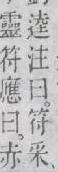 逵注曰。符采、
靈符應曰。赤